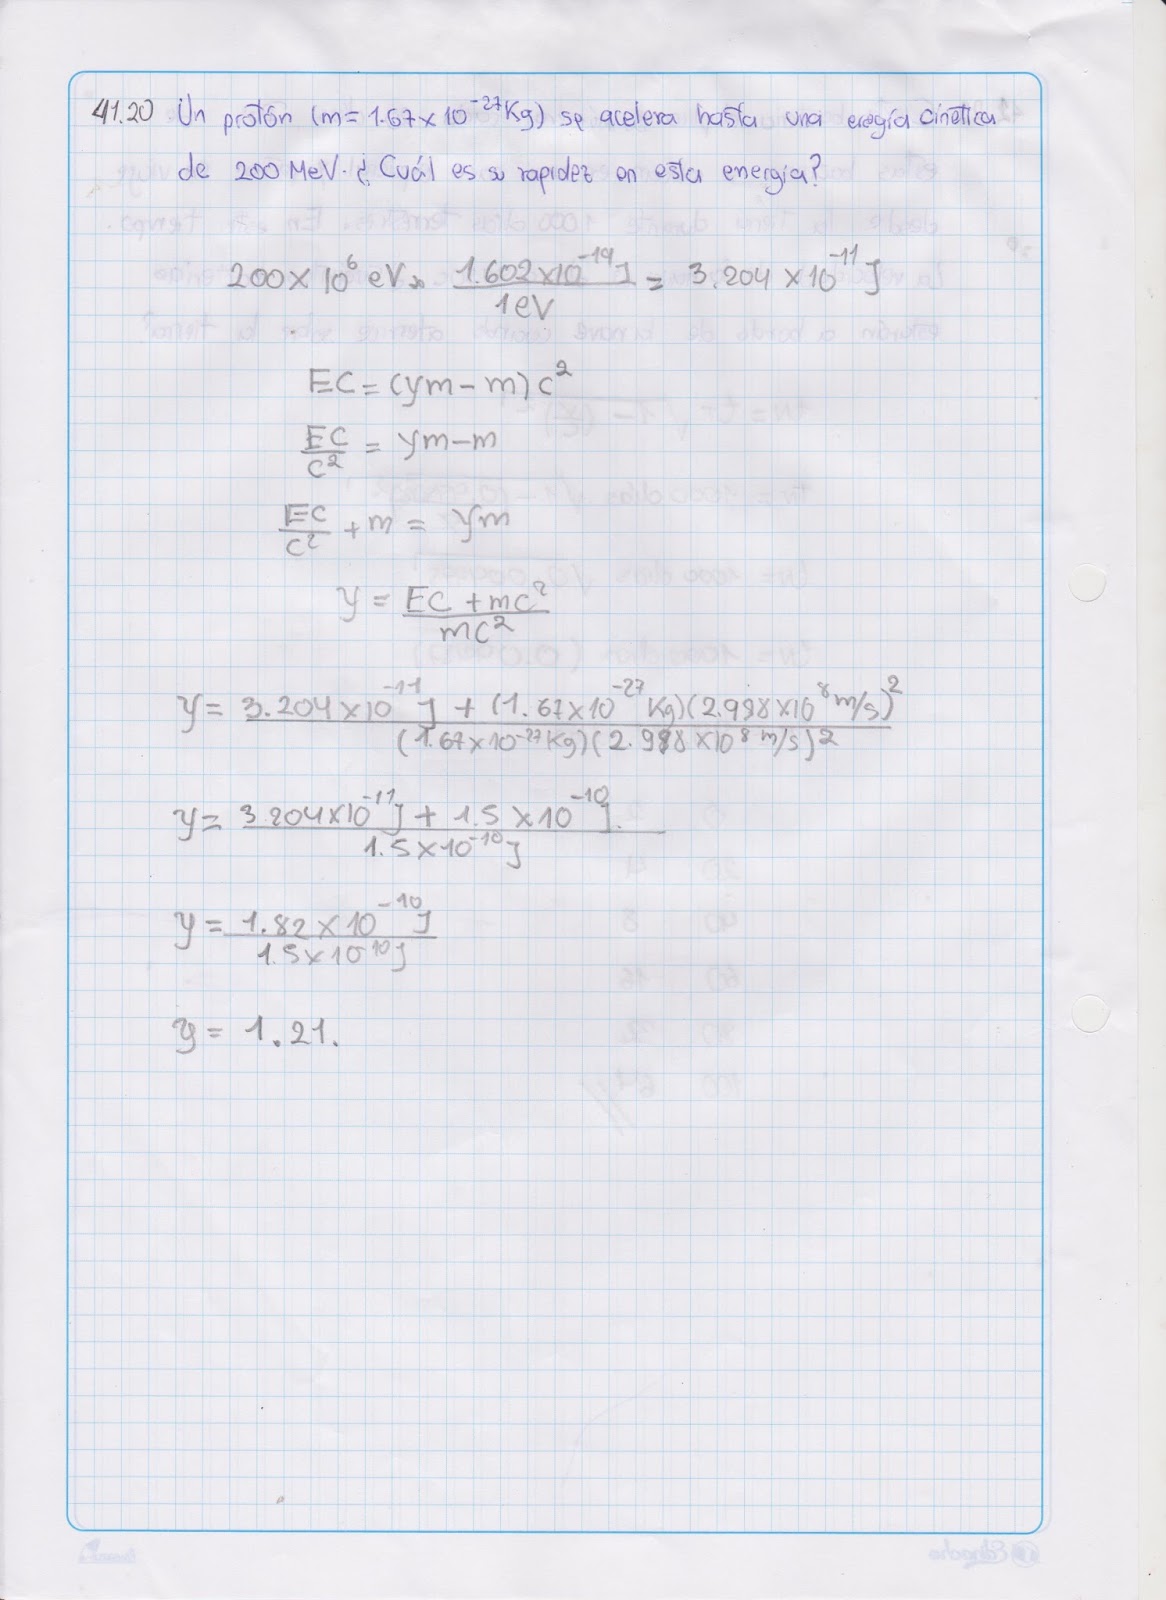 41.20 Un protón (m = 1.67 x 10⁻²⁷ Kg) se acelera hasta una eregía cinética
de 200 MeV. ¿Cuál es su rapidez en esta energía?
200 x 10⁶ eV x 1.602x10⁻¹⁹ J / 1 eV = 3.204 x 10⁻¹¹ J
EC = (γm - m) c²
EC / c² = γm - m
EC / c² + m = γm
γ = EC + mc² / mc²
γ = 3.204 x 10⁻¹¹ J + (1.67x10⁻²⁷ Kg)(2.998x10⁸ m/s)² / (1.67x10⁻²⁷ Kg)(2.998 x10⁸ m/s)²
γ = 3.204x10⁻¹¹ J + 1.5 x 10⁻¹⁰ J. / 1.5x10⁻¹⁰ J
γ = 1.82 x 10⁻¹⁰ J / 1.5x10⁻¹⁰ J
γ = 1.21.